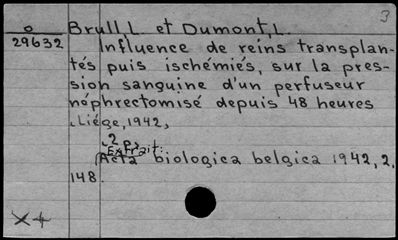 3
o Brull L. et Dumont, L.
29632 Influence de reins transplan-
tés puis ischémiés, sur la pres-
sion sanguine d'un perfuseur
néphrectomisé depuis 48 heures
Liége, 1942,
2 p.
Extrait:
Acta biologica belgica 1942, 2,
148.
X4